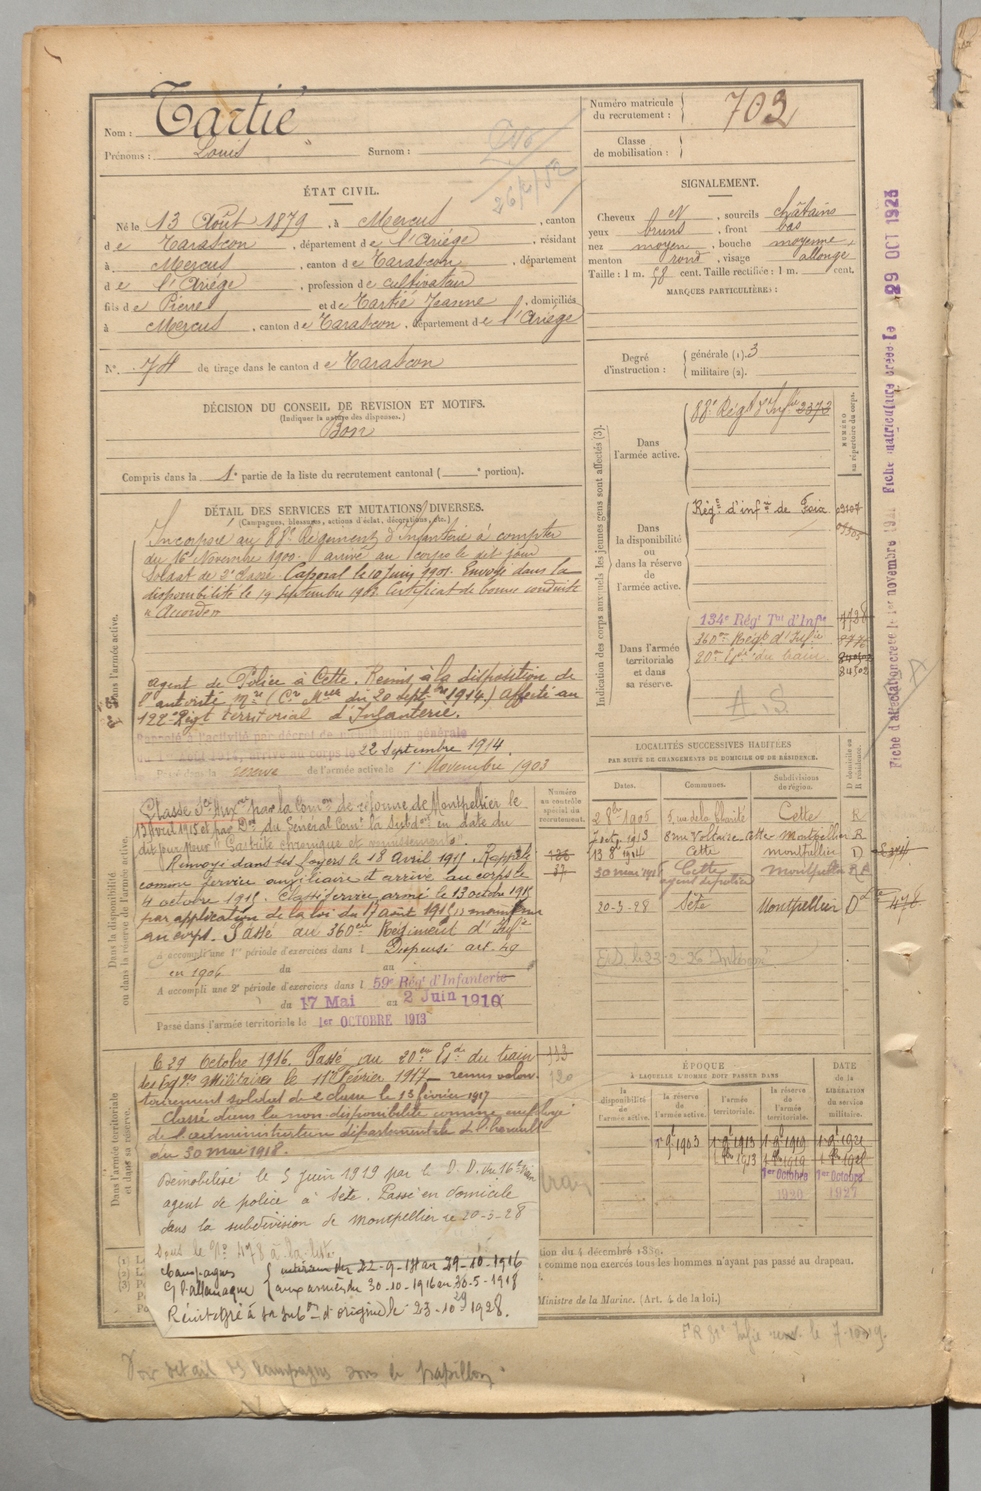 Nom : Tartié
Prénoms : Louis Surnom :
Numéro matricule du recrutement : 703
Classe de mobilisation :
ÉTAT CIVIL.
Né le 13 Août 1879, à Mercus, canton
de Tarascon, département de l'Ariége, résidant
à Mercus, canton de Tarascon, département
de l'Ariége, profession de cultivateur
fils de Pierre et de Tartié Jeanne, domiciliés
à Mercus, canton de Tarascon, département de l'Ariége
N° 74 de tirage dans le canton de Tarascon
DÉCISION DU CONSEIL DE RÉVISION ET MOTIFS.
(Indiquer la nature des dispenses.)
Bon
Compris dans la 1e partie de la liste du recrutement cantonal ( portion).
SIGNALEMENT.
Cheveux N, sourcils châtains
yeux bruns, front bas
nez moyen, bouche moyenne,
menton rond, visage allongé
Taille : 1 m. 58 cent. Taille rectifiée : 1 m. cent.
MARQUES PARTICULIÈRES :
Degré d'instruction : générale (1). 3
militaire (2).
DÉTAIL DES SERVICES ET MUTATIONS DIVERSES.
(Campagnes, blessures, actions d'éclat, décorations, etc.)
Dans l'armée active.
Incorporé au 88e Régiment d'Infanterie à compter
du 16 Novembre 1900. arrivé au corps le dit jour
Soldat de 2e classe. Caporal le 10 Juin 1901. Envoyé dans la
disponibilité le 19 Septembre 1903. Certificat de bonne conduite
"Accordé"
agent de Police à Cette. Remis à la disposition de
l'autorité mre (Cre Mlle du 20 septbre 1914.) Affecté au
122e Régt territorial d'Infanterie.
Rappelé à l'activité par décret de mobilisation générale
du 1er Août 1914, arrivé au corps le 22 Septembre 1914.
Passé dans la réserve de l'armée active le 1er Novembre 1903
Indication des corps auxquels les jeunes gens sont affectés (3).
NUMÉRO au répertoire du corps.
Dans l'armée active.
88e Régt d'Infie 3373
Dans la disponibilité ou dans la réserve de l'armée active.
Régt d'infie de Foix
Dans l'armée territoriale et dans sa réserve.
134e Régt Tal d'Infie
360me Régt d'Infie
20me Esd du train
A.S.
Dans la disponibilité ou dans la réserve de l'armée active.
Numéro au contrôle spécial du recrutement.
Classé Sce Auxre par la Comon de réforme de Montpellier le
13 Avril 1915 et par Don du Général Comt la Subdon en date du
dit jour pour "Gastrite chronique et
Renvoyé dans ses foyers le 18 Avril 1915. Rappelé
comme service auxiliaire et arrivé au corps le
4 octobre 1915. Classé service armé le 13 octobre 1915
par application de la loi du 17 août 1915 maintenu
au corps. Passé au 360eme Régiment d'Infie
A accompli une 1e période d'exercices dans l Dispensé art. 49
en 1906 du au
A accompli une 2e période d'exercices dans l 59e Rég' d'Infanterie
du 17 Mai au 2 Juin 1910
Passé dans l'armée territoriale le 1er OCTOBRE 1913
LOCALITÉS SUCCESSIVES HABITÉES
PAR SUITE DE CHANGEMENTS DE DOMICILE OU DE RÉSIDENCE.
Dates. Communes. Subdivisions de région. D domicile ou R résidence.
2 8bre 1905 5, rue de la Charité Cette R
8 rue Voltaire Cette Montpellier R
13 8 1914 Cette Montpellier D
30 mai 1918 Cette agent de police Montpellier R
20-3-28 Sète Montpellier Dle 478
Dans l'armée territoriale et dans sa réserve.
le 29 Octobre 1916. Passé au 20me Esd du train
des Eqges Militaires le 11 février 1917 - remis volon-
tairement soldat de 2e classe le 13 février 1917
Classé dans la non-disponibilité comme employé
de l'administration départementale de l'herault
du 30 mai 1918.
ÉPOQUE
À LAQUELLE L'HOMME DOIT PASSER DANS
la disponibilité de l'armée active. la réserve de l'armée active. l'armée territoriale. la réserve de l'armée territoriale.
DATE de la LIBÉRATION du service militaire.
1er 9bre 1903 1er 9bre 1913 1er 9bre 1919
1er Octobre 1920 1er Octobre 1927
Démobilisé le 5 Juin 1919 par le D. D. du 16e train
agent de police à Sète. Passé en domicile
dans la subdivision de Montpellier le 20-3-28
sous le No 478 de la liste
Campagnes { intérieur du 22-9-14 au 29-10-1916
C l'allemagne { aux armées du 30-10-1916 au 30-5-1918
Réintégré à sa subon d'origine le 23-10-1928.
tion du 4 décembre 1889.
comme non exercés tous les hommes n'ayant pas passé au drapeau.
Ministre de la Marine. (Art. 4 de la loi.)
Voir détail des campagnes sous le papillon.
29 OCT 1923